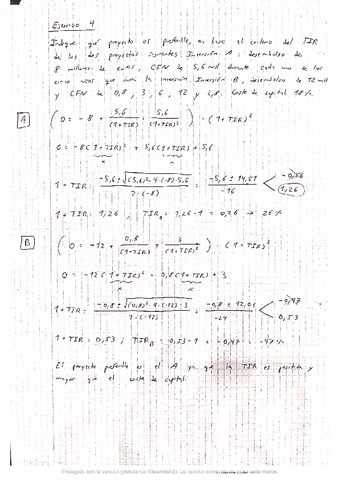 Ejercicio 4
Indique qué proyecto es preferible, en base al criterio del TIR
de los dos proyectos siguientes Inversión A: desembolso de
8 millones de euros, CFN de 5,6 mill durante cada uno de los
años que dura la inversión Inversión B, desembolso de 12 mill
y CFN de 0,8, 3, 6, 12 y 2,8. Coste de capital 18%.
A (0 = -8 + 5,6/(1+TIR) + 5,6/(1+TIR)²) · (1+TIR)²
0 = -8(1+TIR)² + 5,6(1+TIR) + 5,6
x x
1+TIR = -5,6 ± √(5,6)²-4·(-8)·5,6 / 2·(-8) = -5,6 ± 14,51 / -16 < -0,56
1,26
1+TIR = 1,26 ; TIR = 1,26-1 = 0,26 → 26%
B (0 = -12 + 0,8/(1+TIR) + 3/(1+TIR)²) · (1+TIR)²
0 = -12(1+TIR)² + 0,8(1+TIR) + 3
x x
1+TIR = -0,8 ± √(0,8)²-4·(-12)·3 / 2·(-12) = -0,8 ± 12,03 / -24 < -0,47
0,53
1+TIR = 0,53 ; TIR_B = 0,53-1 = -0,47 = -47%
El proyecto preferible es el A ya que la TIR es positiva y
mayor que el coste de capital.